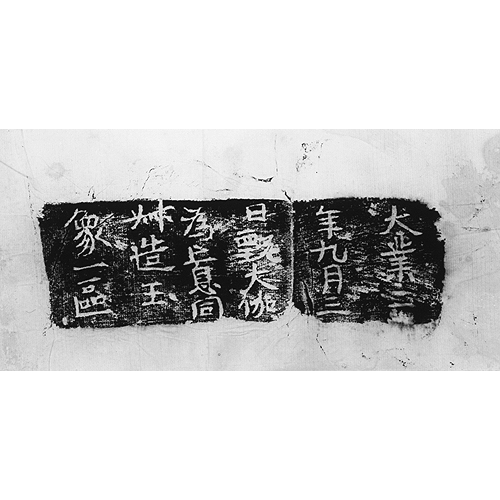 大業
年九月二
日甄大
為亡息同
造玉
象一區